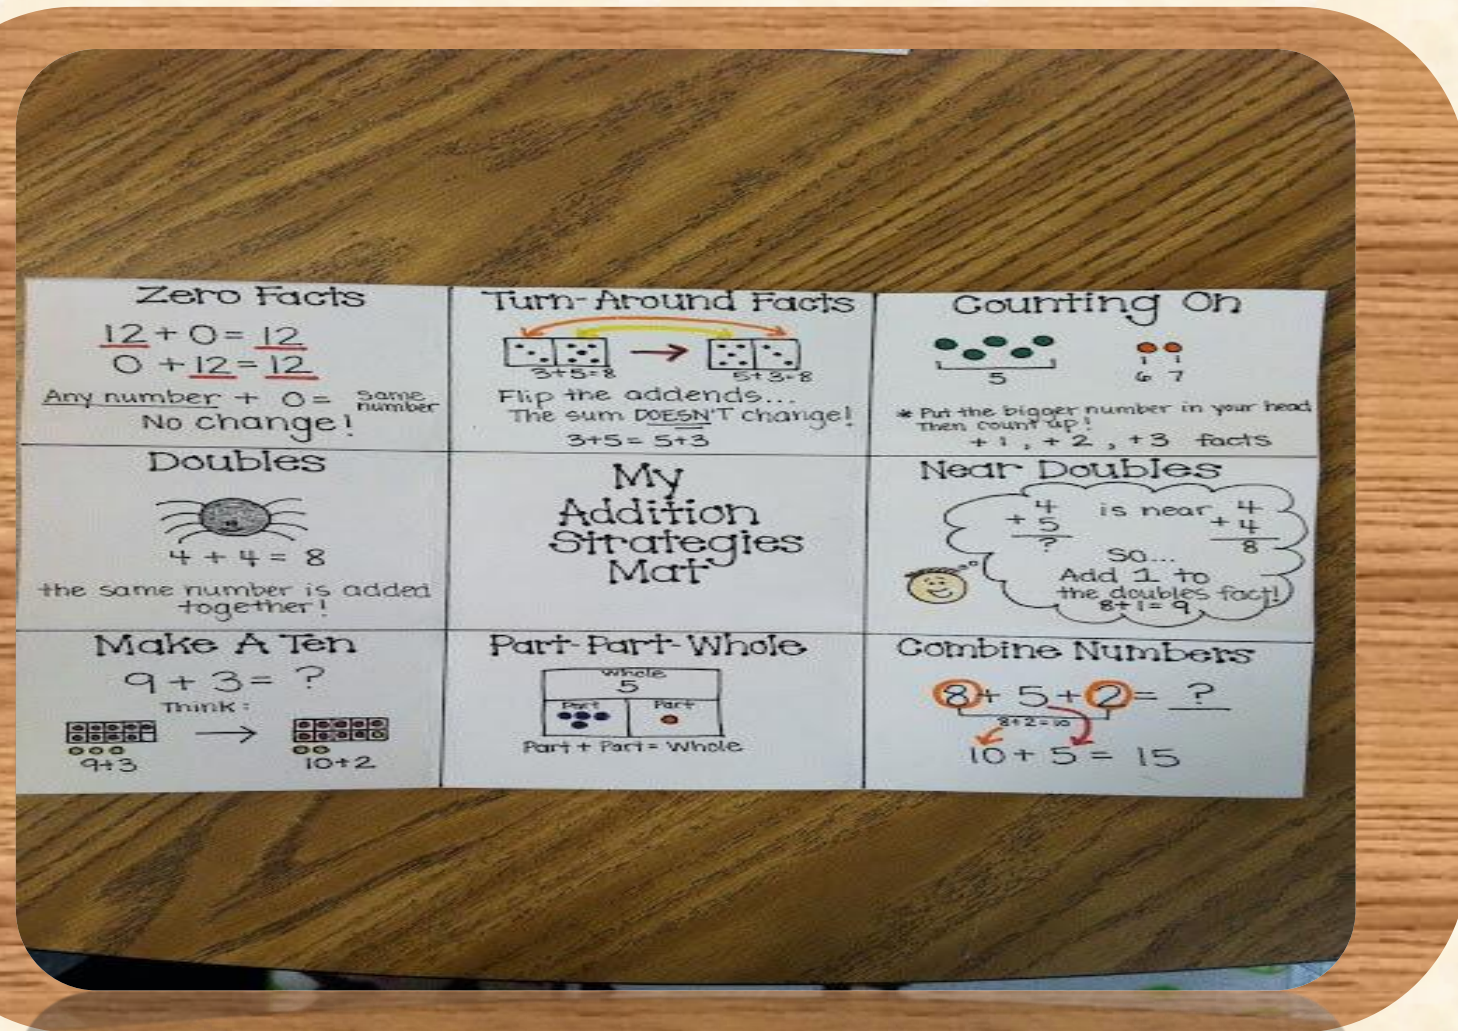 Zero Facts
12 + 0 = 12
0 + 12 = 12
Any number + 0 = same number
No change!
Turn-Around Facts
3+5=8
5+3=8
Flip the addends...
The sum DOESN'T change!
3+5= 5+3
Counting On
5
6 7
* Put the bigger number in your head
Then count up!
+1, +2, +3 facts
Doubles
4 + 4 = 8
the same number is added
together!
My
Addition
Strategies
Mat
Near Doubles
4 is near 4
+ 5 + 4
? 8
So...
Add 1 to
the doubles fact!
8+1=9
Make A Ten
9 + 3 = ?
Think:
9+3
10+2
Part-Part-Whole
Whole
5
Part Part
Part + Part = Whole
Combine Numbers
8 + 5 + 2 = ?
8+2=10
10 + 5 = 15